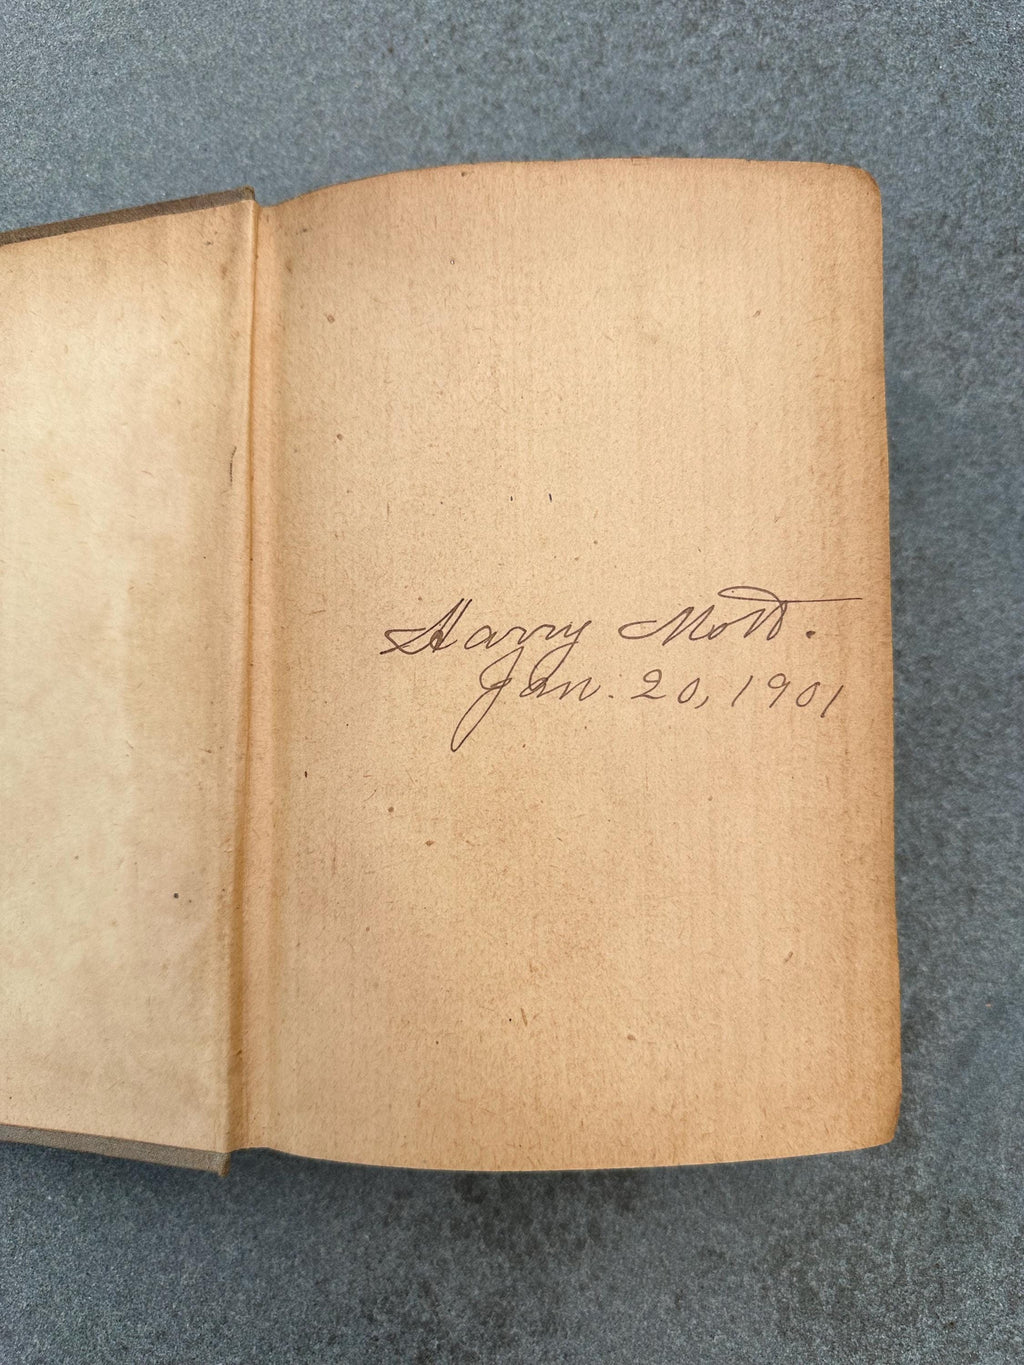 Harry Mott.
Jan. 20, 1901